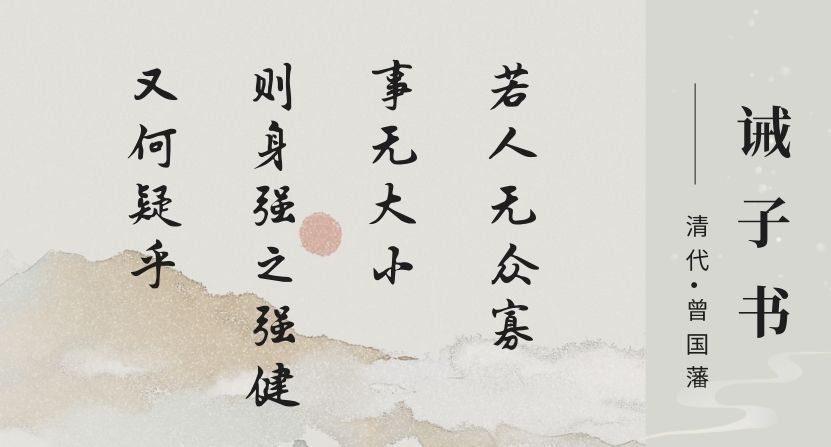 诫子书
清代·曾国藩
若人无众寡
事无大小
则身强之强健
又何疑乎